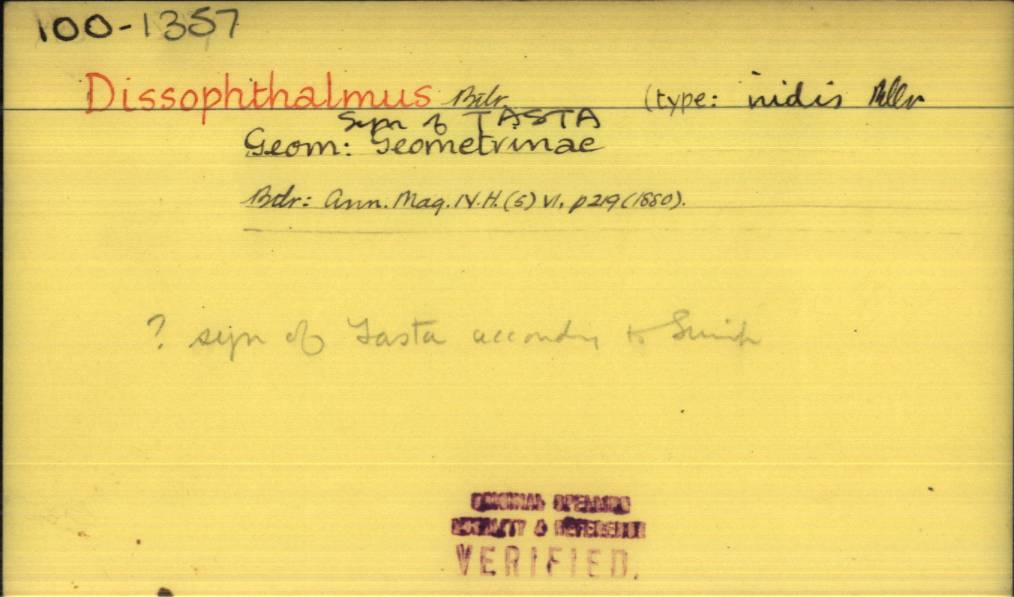 100-1357
Dissophthalmus Btlr (type: iridis Btlr
Syn of TASTA
Geom: Geometrinae
Btlr: Ann. Mag. N.H. (5) VI, p219 (1880).
? syn of Tasta according to Swinh
ORIGINAL SPELLING
LOCALITY & REFERENCE
VERIFIED.